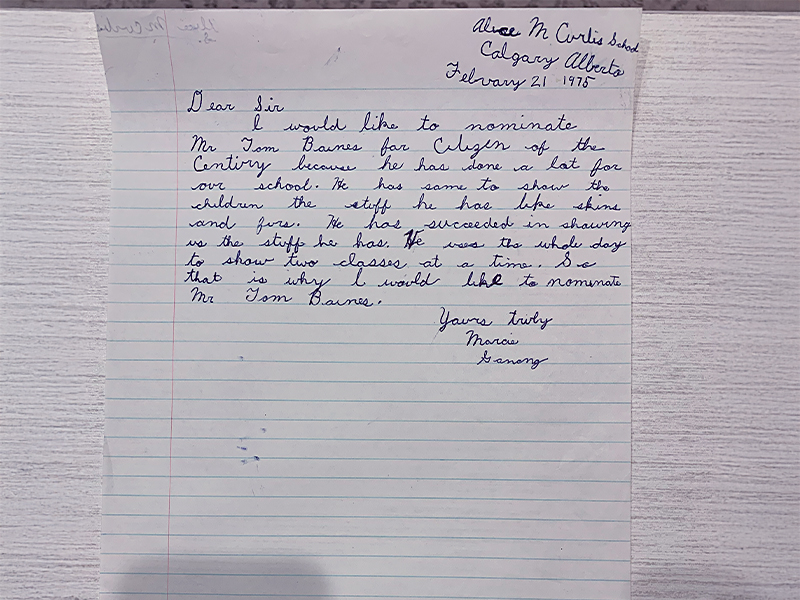 Alice M Curtis School
Calgary Alberta
Febuary 21 1975
Dear Sir
I would like to nominate
Mr Tom Baines for Citizen of the
Centiry because he has done a lot for
our school. He has came to show the
children the stuff he has like skins
and furs. He has succeeded in showing
us the stuff he has. He uses the whole day
to show two classes at a time. So
that is why I would like to nominate
Mr Tom Baines.
Yours truly
Marcie
Ganong